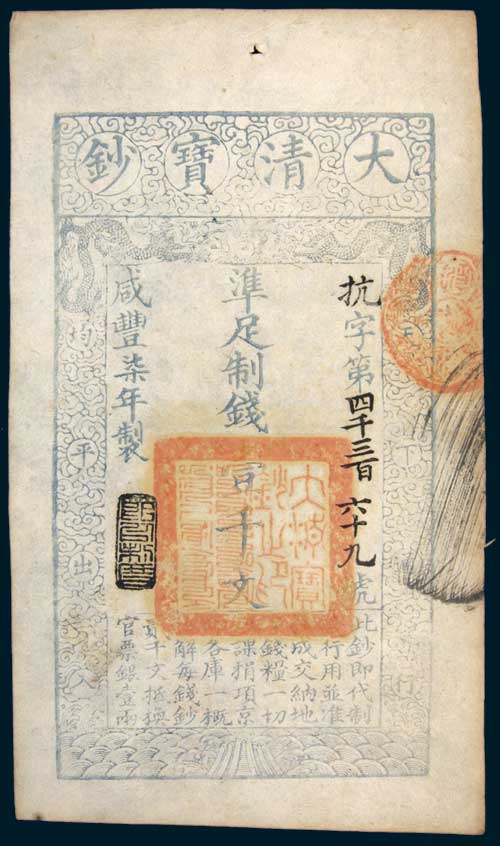 大清寶鈔
天下行
抗字第四千三百六十九號
準足制錢百千文
咸豐柒年製
均平出入
此鈔即代制
行用並准
成交納地
錢糧一切
課捐項京
各庫一概
解每錢鈔
貳千文抵換
官票銀壹兩